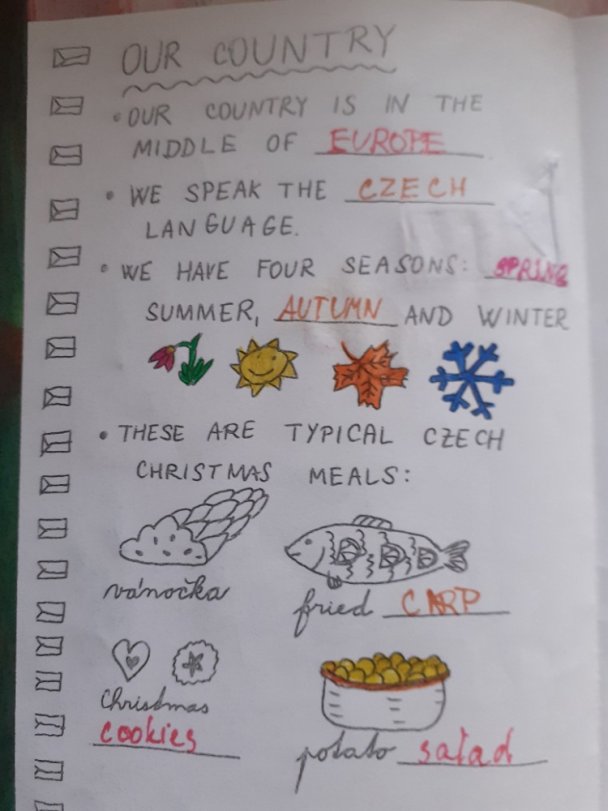 OUR COUNTRY
• OUR COUNTRY IS IN THE
MIDDLE OF EUROPE
• WE SPEAK THE CZECH
LANGUAGE.
• WE HAVE FOUR SEASONS: SPRING
SUMMER, AUTUMN AND WINTER
• THESE ARE TYPICAL CZECH
CHRISTMAS MEALS:
vánočka
fried CARP
Christmas
cookies
potato salad